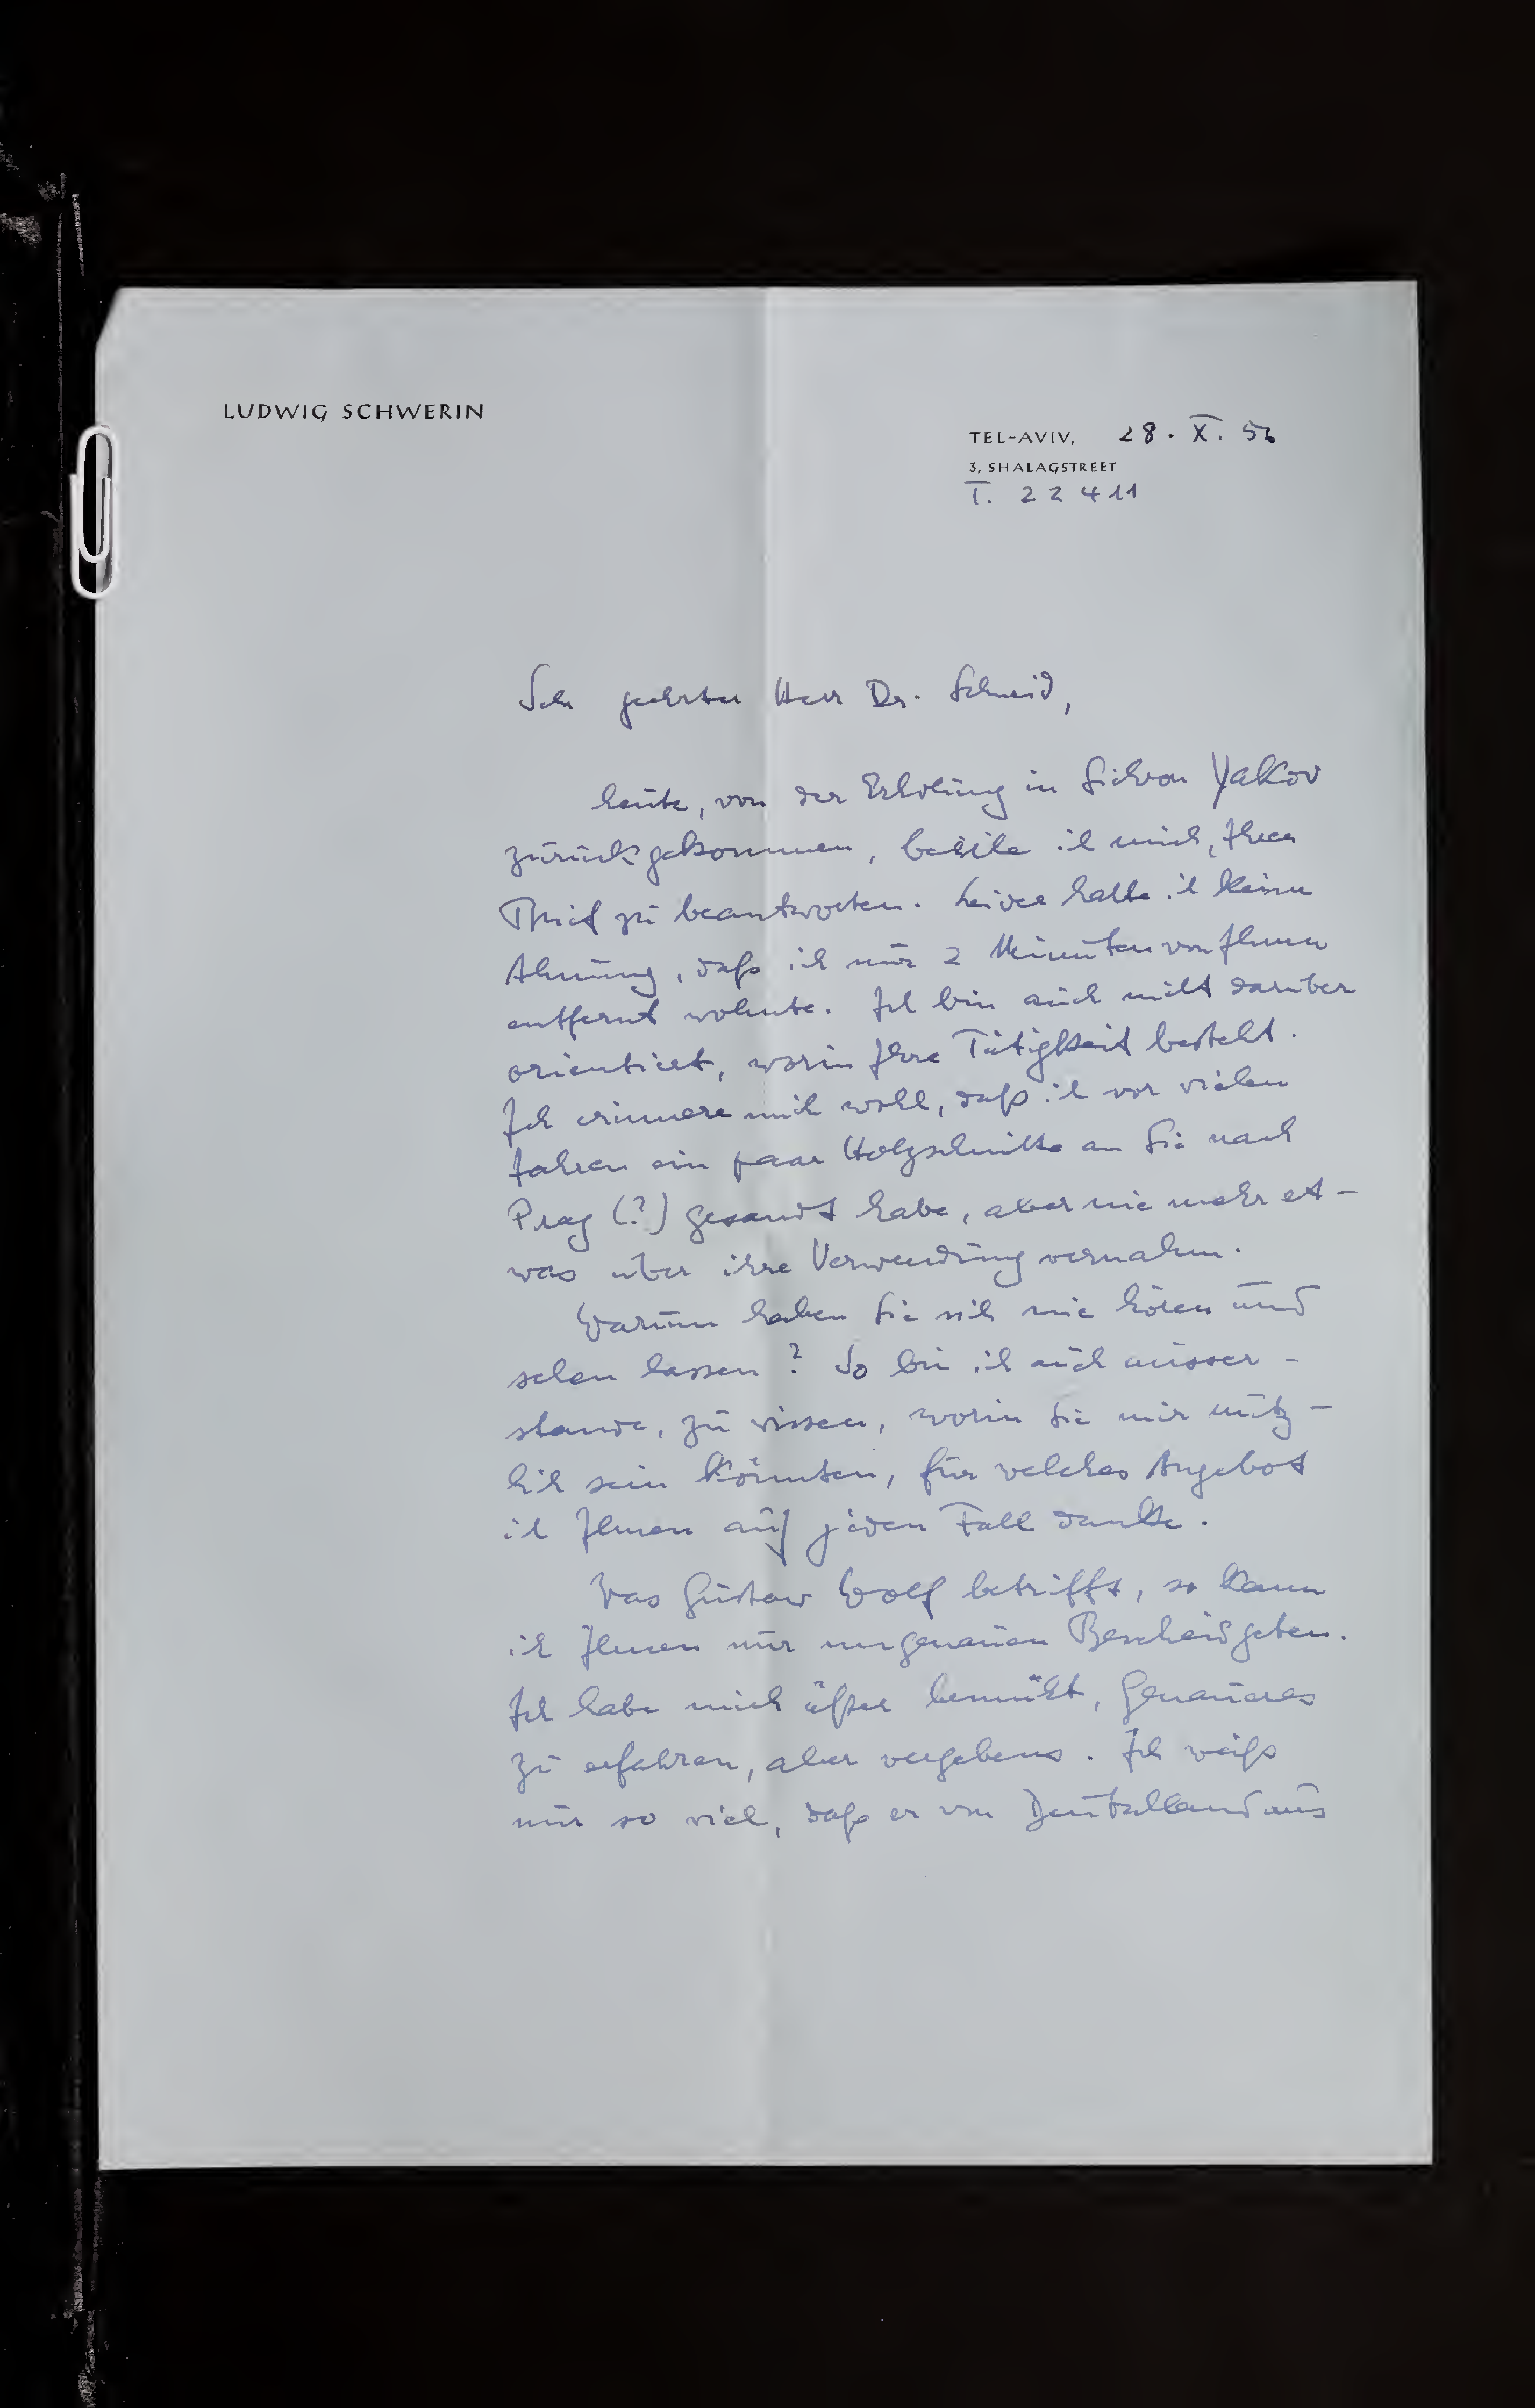 LUDWIG SCHWERIN
TEL-AVIV, 28. X. 56
3, SHALAGSTREET
T. 22411
Sehr geehrter Herr Dr. Schmid,
heute, von der Erholung in Sichron Yakov
zurückgekommen, beeile ich mich, Ihren
Brief zu beantworten. Leider hatte ich keine
Ahnung, daß ich nur 2 Minuten von Ihnen
entfernt wohnte. Ich bin auch nicht darüber
orientiert, worin Ihre Tätigkeit besteht.
Ich erinnere mich wohl, daß ich vor vielen
Jahren ein paar Holzschnitte an Sie nach
Prag (?) gesandt habe, aber nie mehr et-
was über ihre Verwendung vernahm.
Warum haben Sie sich nie hören und
sehen lassen? So bin ich auch ausser-
stande, zu wissen, worin Sie mir nütz-
lich sein könnten, für welches Angebot
ich Ihnen auf jeden Fall danke.
Was Gustav Wolf betrifft, so kann
ich Ihnen nur ungenauen Bescheid geben.
Ich habe mich öfter bemüht, Genaueres
zu erfahren, aber vergebens. Ich weiß
nur so viel, daß er von Deutschland aus